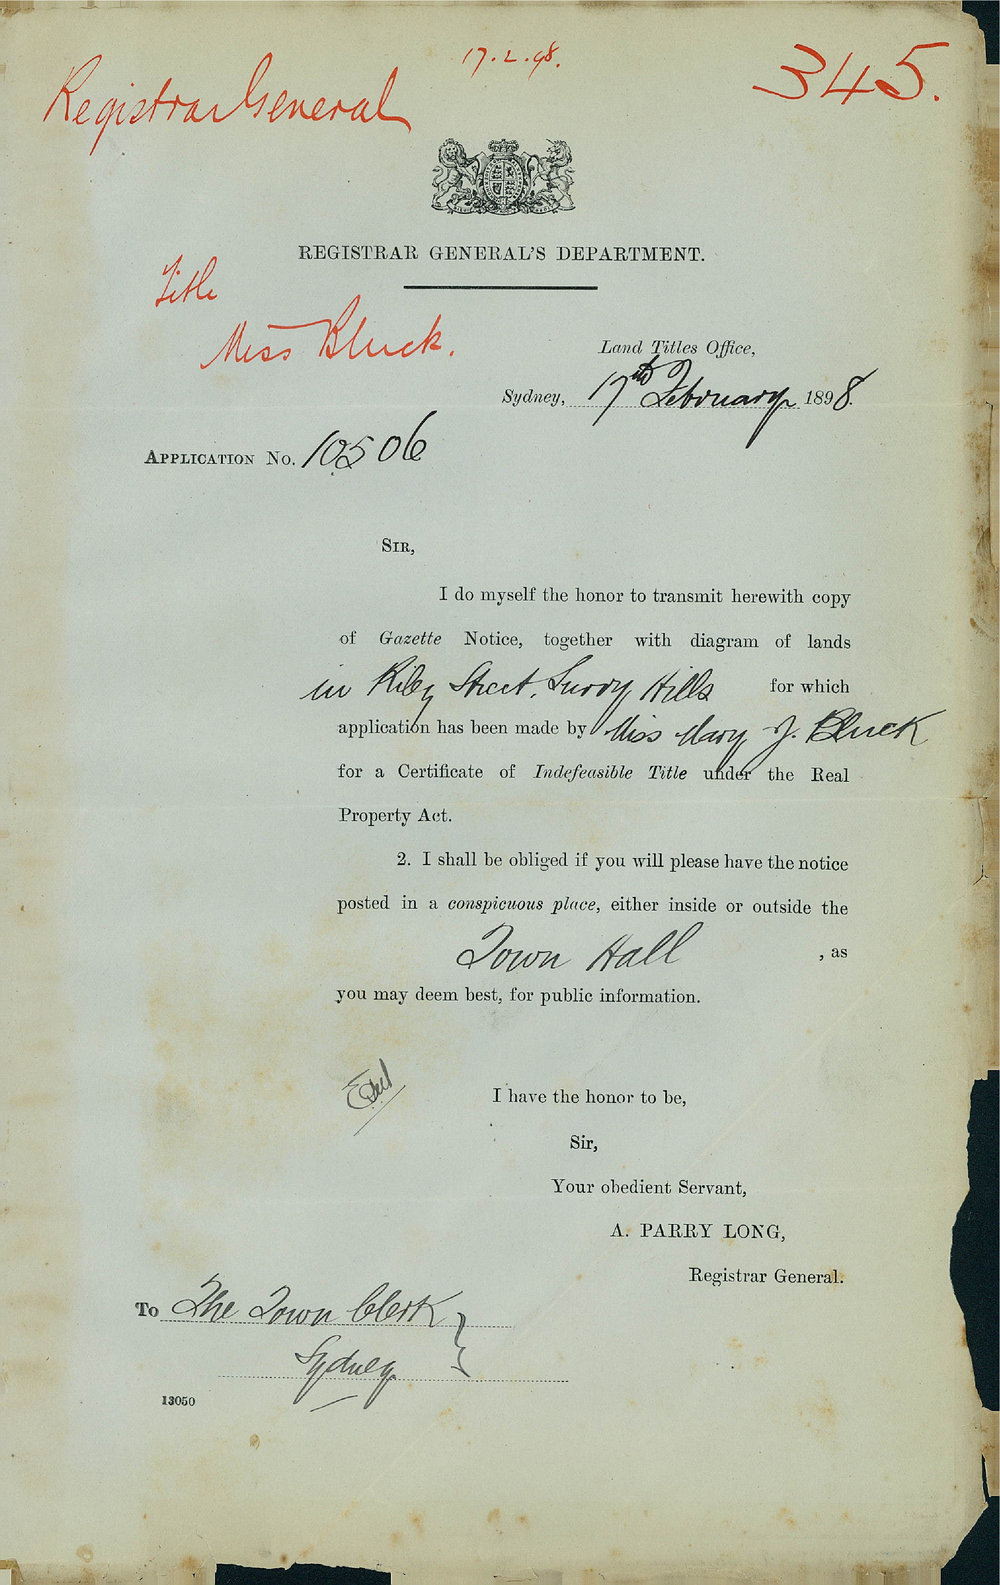 17.2.98.
345.
Registrar General
REGISTRAR GENERAL'S DEPARTMENT.
Title
Miss Bluck.
Land Titles Office,
Sydney, 17th February 1898.
APPLICATION No. 10506
SIR,
I do myself the honor to transmit herewith copy
of Gazette Notice, together with diagram of lands
in Riley Street, Surry Hills for which
application has been made by Miss Mary J. Bluck
for a Certificate of Indefeasible Title under the Real
Property Act.
2. I shall be obliged if you will please have the notice
posted in a conspicuous place, either inside or outside the
Town Hall , as
you may deem best, for public information.
I have the honor to be,
Sir,
Your obedient Servant,
A. PARRY LONG,
Registrar General.
To The Town Clerk
Sydney.
13050